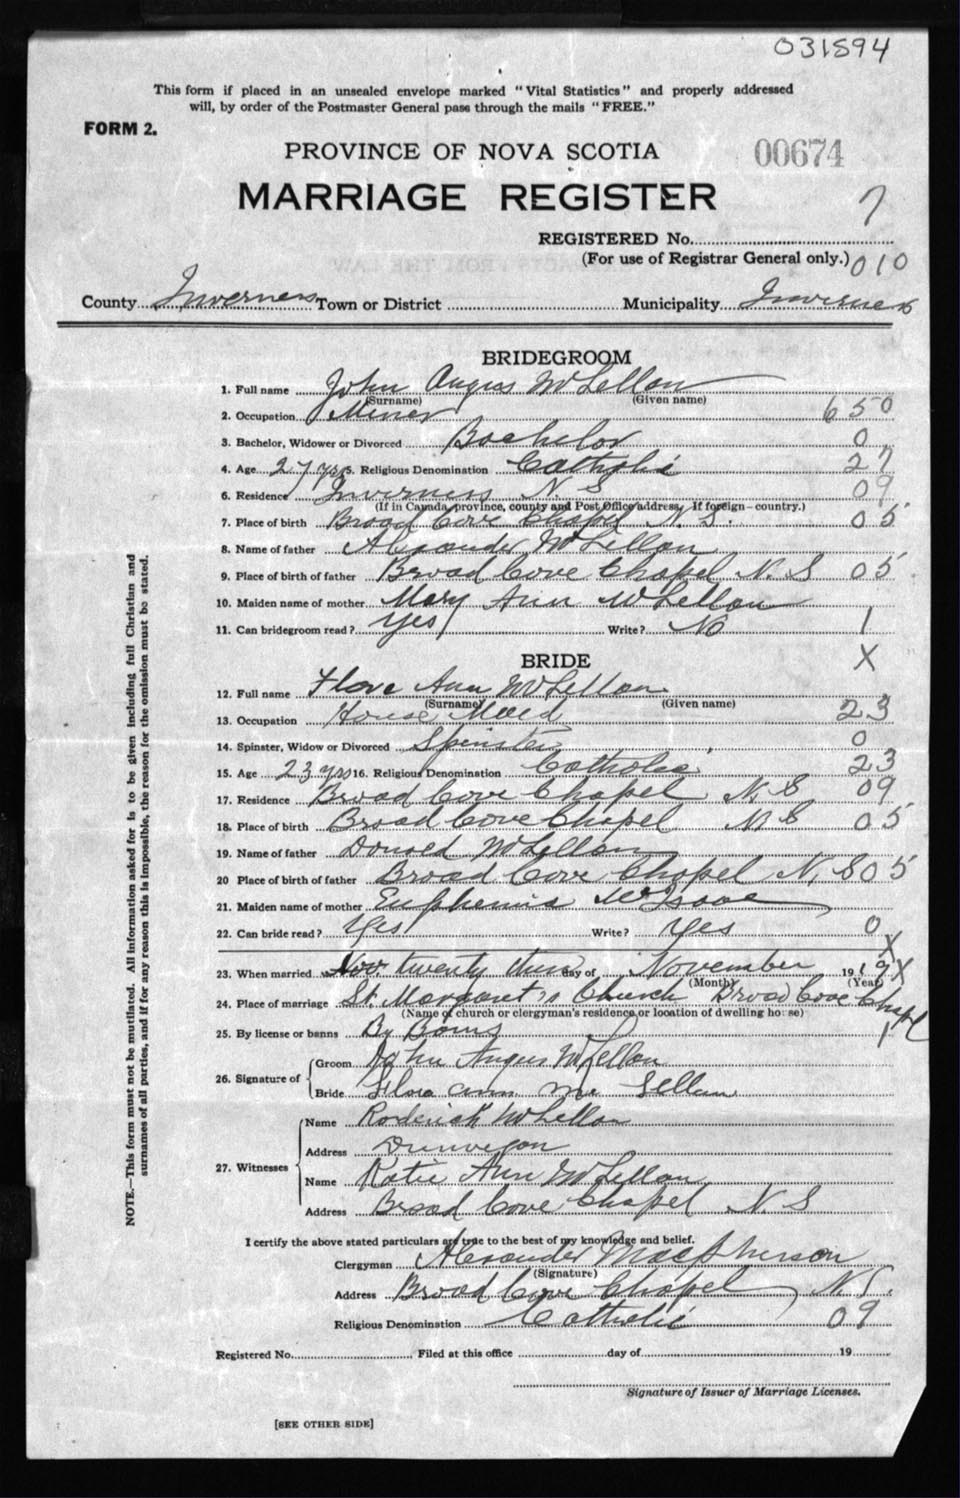 031894
This form if placed in an unsealed envelope marked "Vital Statistics" and properly addressed
will, by order of the Postmaster General pass through the mails "FREE."
FORM 2.
PROVINCE OF NOVA SCOTIA
00674
MARRIAGE REGISTER
7
REGISTERED No.
(For use of Registrar General only.) 010
County Inverness Town or District Municipality Inverness
BRIDEGROOM
1. Full name John Angus McLellan
(Surname) (Given name)
2. Occupation Miner 650
3. Bachelor, Widower or Divorced Bachelor 0
4. Age 27 yrs 5. Religious Denomination Catholic 27
6. Residence Inverness N. S 09
(If in Canada, province, county and Post Office address. If foreign—country.)
7. Place of birth Broad Cove Chapel N. S. 05
8. Name of father Alexander McLellan
9. Place of birth of father Broad Cove Chapel N. S 05
10. Maiden name of mother Mary Ann McLellan
11. Can bridegroom read? Yes Write? No 1
BRIDE X
12. Full name Flora Ann McLellan
(Surname) (Given name)
13. Occupation House Maid 23
14. Spinster, Widow or Divorced Spinster 0
15. Age 23 yrs 16. Religious Denomination Catholic 23
17. Residence Broad Cove Chapel N. S 09
18. Place of birth Broad Cove Chapel N S 05
19. Name of father Donald McLellan
20 Place of birth of father Broad Cove Chapel N. S 05
21. Maiden name of mother Euphemia McIsaac
22. Can bride read? Yes Write? Yes 0
X
23. When married Nov. twenty day of November 1919 X
(Month) (Year)
24. Place of marriage St. Margaret's Church Broad Cove Chapel
(Name of church or clergyman's residence or location of dwelling house)
25. By license or banns By Banns 1
26. Signature of Groom John Angus McLellan
Bride Flora ann Mc Lellan
27. Witnesses Name Roderick McLellan
Address Dunvegan
Name Katie Ann McLellan
Address Broad Cove Chapel N. S
I certify the above stated particulars are true to the best of my knowledge and belief.
Clergyman Alexander Macpherson
(Signature)
Address Broad Cove Chapel, N. S.
Religious Denomination Catholic 09
Registered No. Filed at this office day of 19
Signature of Issuer of Marriage Licenses.
[SEE OTHER SIDE]
NOTE.—This form must not be mutilated. All information asked for is to be given including full Christian and
surnames of all parties, and if for any reason this is impossible, the reason for the omission must be stated.